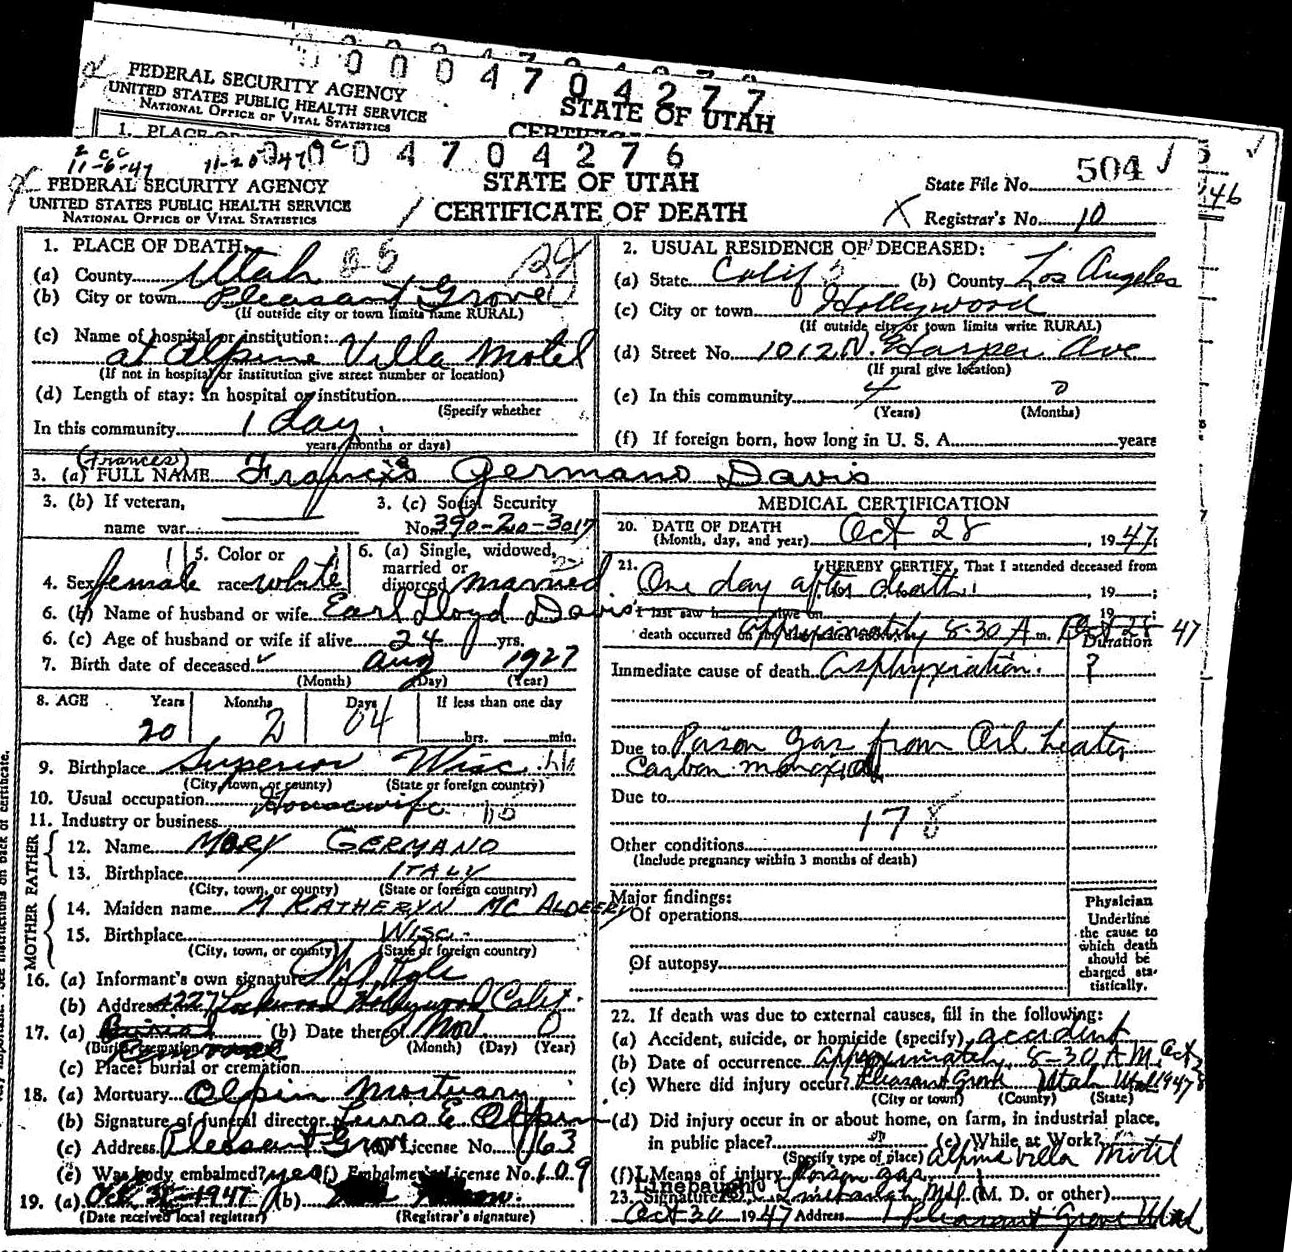 0 0 0 4 7 0 4 2 7 7
FEDERAL SECURITY AGENCY
UNITED STATES PUBLIC HEALTH SERVICE
NATIONAL OFFICE OF VITAL STATISTICS
STATE OF UTAH
1. PLACE
46
11-6-47 11-20-47
0 0 0 4 7 0 4 2 7 6
FEDERAL SECURITY AGENCY
UNITED STATES PUBLIC HEALTH SERVICE
NATIONAL OFFICE OF VITAL STATISTICS
STATE OF UTAH
CERTIFICATE OF DEATH
State File No. 504
Registrar's No. 10
1. PLACE OF DEATH:
(a) County Utah
(b) City or town Pleasant Grove
(If outside city or town limits name RURAL)
(c) Name of hospital or institution:
at Alpine Villa Motel
(If not in hospital or institution give street number or location)
(d) Length of stay: In hospital or institution
(Specify whether
In this community 1 day
years, months or days)
2. USUAL RESIDENCE OF DECEASED:
(a) State Calif (b) County Los Angeles
(c) City or town Hollywood
(If outside city or town limits write RURAL)
(d) Street No. 1012 N. Harper Ave
(If rural give location)
(e) In this community 4
(Years) (Months)
(f) If foreign born, how long in U. S. A. years
(Frances)
3. (a) FULL NAME Francis Germano Davis
3. (b) If veteran,
name war
3. (c) Social Security
No. 390-20-3017
4. Sex female
5. Color or
race white
6. (a) Single, widowed,
married or
divorced married
6. (b) Name of husband or wife Earl Lloyd Davis
6. (c) Age of husband or wife if alive 24 yrs.
7. Birth date of deceased Aug 1927
(Month) (Day) (Year)
8. AGE Years Months Days If less than one day
20 2 04 hrs. min.
9. Birthplace Superior Wisc.
(City, town, or county) (State or foreign country)
10. Usual occupation Housewife
11. Industry or business
FATHER
12. Name MORY GERMANO
13. Birthplace ITALY
(City, town, or county) (State or foreign country)
MOTHER
14. Maiden name M KATHERYN
15. Birthplace WISC.
(City, town, or county) (State or foreign country)
16. (a) Informant's own signature
(b) Address Lockwood Hollywood Calif.
17. (a) Burial (b) Date thereof Nov
(Burial cremation (Month) (Day) (Year)
(c) Place: burial or cremation
18. (a) Mortuary Olpin Mortuary
(b) Signature of funeral director Luris E Olpin
(c) Address Pleasant Grove License No. 163
(e) Was body embalmed? yes (f) Embalmer's License No. 109
19. (a) Oct 1947 (b)
(Date received local registrar) (Registrar's signature)
MEDICAL CERTIFICATION
20. DATE OF DEATH
(Month, day, and year) Oct 28, 1947
21. I HEREBY CERTIFY, That I attended deceased from
One day after death. , 19 ;
I last saw h alive on 19 ;
death occurred on approximately 8-30 A m. Oct 28 47
Duration
Immediate cause of death Asphyxiation. ?
Due to Poison gas from Oil heater
Carbon monoxide
Due to
178
Other conditions
(Include pregnancy within 3 months of death)
Major findings:
Of operations
Of autopsy
Physician
Underline
the cause to
which death
should be
charged sta-
tistically.
22. If death was due to external causes, fill in the following:
(a) Accident, suicide, or homicide (specify) accident
(b) Date of occurrence approximately 8-30 A.M. Oct 28
(c) Where did injury occur? Pleasant Grove Utah Utah 1947
(City or town) (County) (State)
(d) Did injury occur in or about home, on farm, in industrial place,
in public place? (e) While at Work?
(Specify type of place) Alpine Villa Motel
(f) Means of injury Poison gas
Linebaugh
23. Signature Linebaugh M.D. (M. D. or other)
Oct 30 1947 Address Pleasant Grove Utah